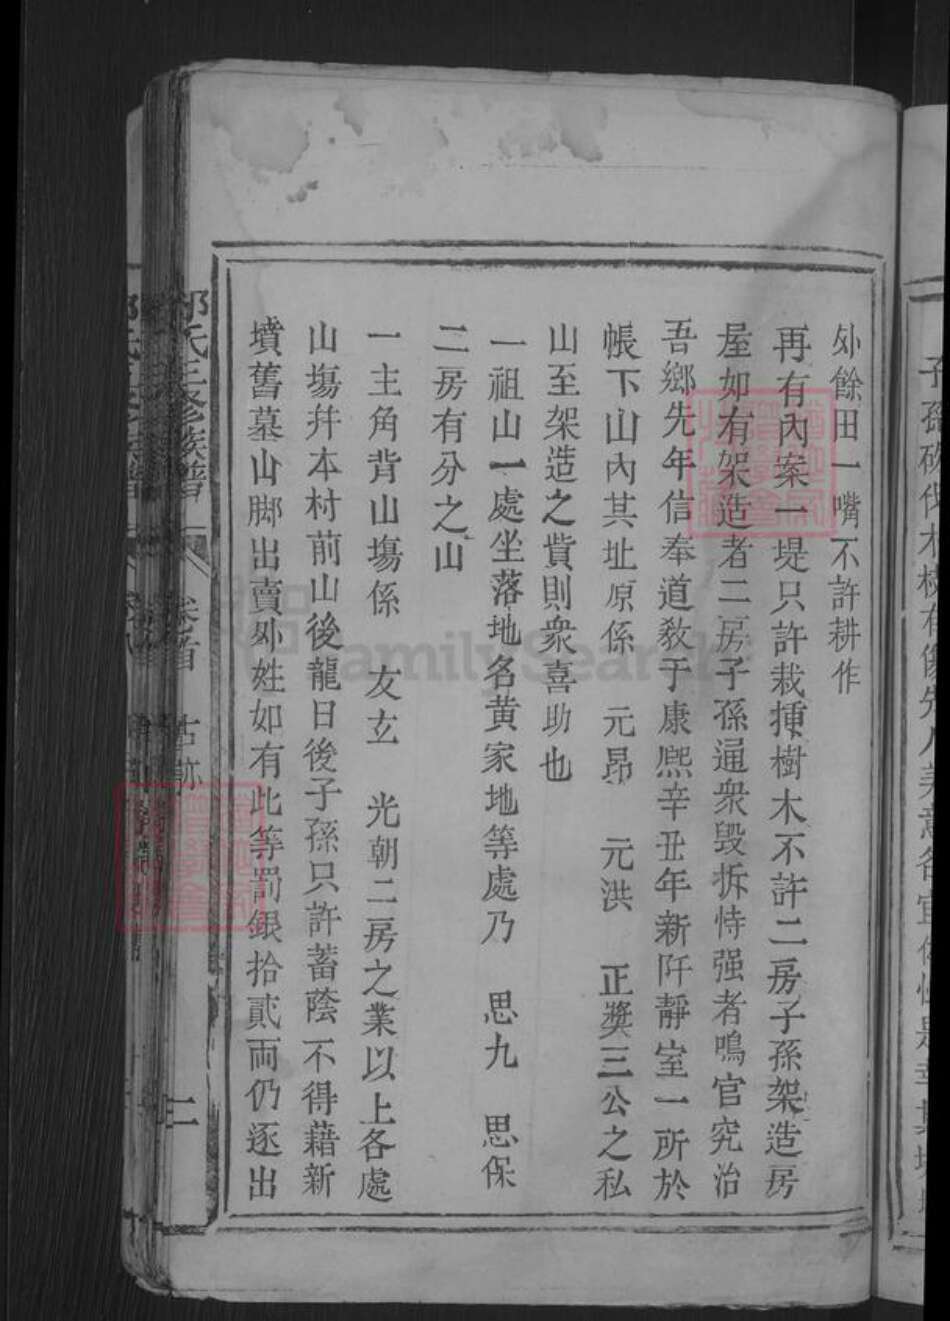 外餘田一嘴不許耕作
再有內案一堤只許栽揷樹木不許二房子孫架造房
屋如有架造者二房子孫通衆毀拆恃强者鳴官究治
吾鄉先年信奉道敎于康熈辛丑年新阡靜室一所於
帳下山內其址原係 元昂 元洪 正奬三公之私
山至架造之貲則衆喜助也
一祖山一處坐落地名黄家地等處乃 思九 思保
二房有分之山
一主角背山塲係 友玄 光朝二房之業以上各處
山塲幷本村前山後龍日後子孫只許蓄蔭不得藉新
墳舊墓山脚出賣外姓如有此等罰銀拾貳両仍逐出
氏三修族譜 卷首 古跡 二
FamilySearch